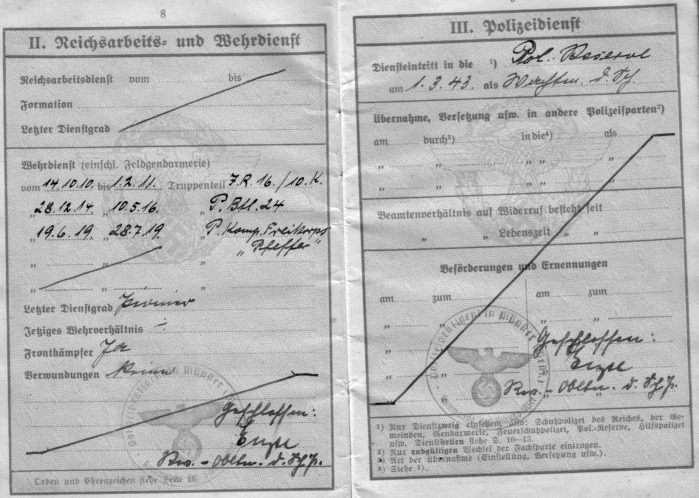 8
II. Reichsarbeits- und Wehrdienst
Reichsarbeitsdienst vom bis
Formation
Letzter Dienstgrad
Wehrdienst (einschl. Feldgendarmerie)
vom 14.10.10. bis 1.2.11. Truppenteil J.R. 16./10.K.
28.12.14 „ 10.5.16. „ P. Btl. 24
„ 19.6.19 „ 28.7.19 „ P. Komp. Freikorps
„ „ „ „Pfeffer“
„ „ „
Letzter Dienstgrad Pionier
Jetziges Wehrverhältnis
Frontkämpfer Ja
Verwundungen Keine
Geschlossen:
Res. - Obltn. d. Sch. P.
Orden und Ehrenzeichen (siehe Seite 19)
III. Polizeidienst
Diensteintritt in die ¹) Pol.-Reserve
am 1.3.43. als Wachtm. d. Sch.
übernahme, Versetzung usw. in andere Polizeisparten²)
am durch³) in die⁴) als
„ „ „ „ „
„ „ „ „ „
Beamtenverhältnis auf Widerruf besteht seit
„ „ Lebenszeit „ „
Beförderungen und Ernennungen
am zum am zum
„ „ „ „
„ „
„ „
„ „
Geschlossen:
Res. - Obltn. d. Sch. P.
¹) Nur Dienstzweig einsetzen, also: Schutzpolizei des Reiches, der Ge-
meinden, Gendarmerie, Feuerschutzpolizei, Pol.-Reserve, Hilfspolizei
usw. Dienststellen siehe S. 10—13.
²) Nur endgültigen Wechsel der Fachsparte eintragen.
³) Art der Übernahme (Einstellung, Versetzung usw.).
⁴) Siehe ¹).